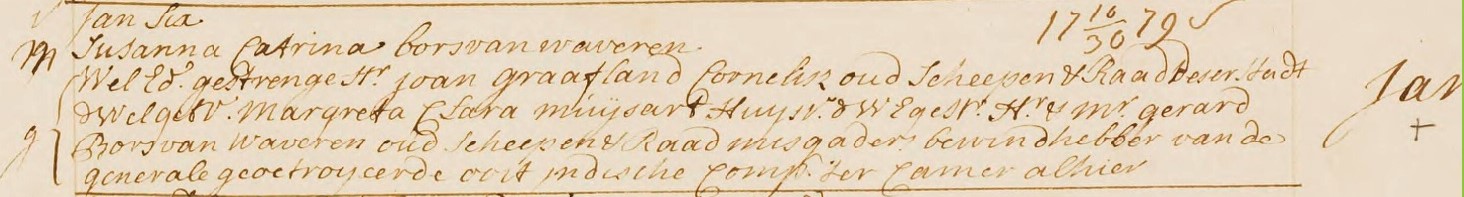 v Jan Six 17 16/30 79
m Susanna Catrina borsvanwaveren
Wel Ed. gestrenge Hr. joan graafland Cornelisz oud Scheepen & Raad Deser Stadt Jan
& Welgetr. Margreta Clara muijsart Huysvr. & WEgestr. Hr. & mr. gerard +
g Borsvan waveren oud Scheepen & Raad misgaders bewindhebber van de
generale geoctroijeerde oost jndische Comp. ter Camer alhier